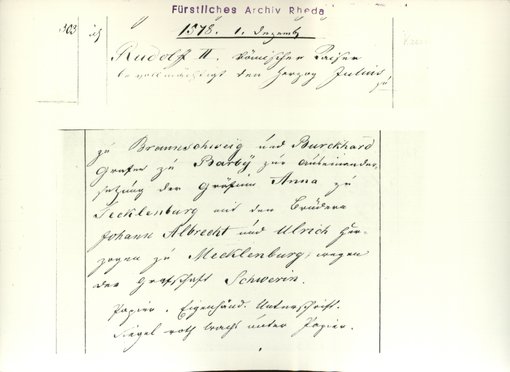 Fürstliches Archiv Rheda
303
1578. 1. Dezemb.
Rudolf II. römischer Kaiser
bevollmächtigt den Herzog Julius
zu
zu Braunschweig und Burckhard
Grafen zu Barby zur Auseinander-
setzung der Gräfinn Anna zu
Tecklenburg mit den Brüdern
Johann Albrecht und Ulrich Her-
zogen zu Mecklenburg, wegen
der Grafschaft Schwerin.
Papier. Eigenhänd. Unterschrift.
Siegel roth Wachs unter Papier.